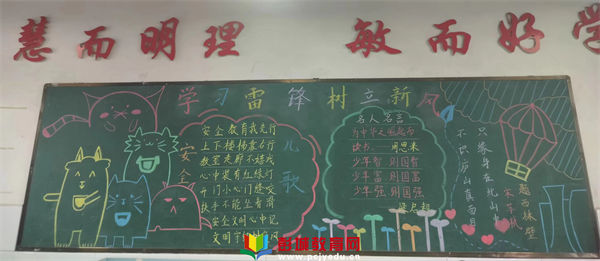 慧而明理 敏而好学
学习雷锋树立新风
安全
儿歌
安全教育我先行
上下楼梯靠右行
教室走廊不嬉戏
心中装有红绿灯
开门小心门缝夹
扶手不能坐着滑
安全文明心中记
名人名言
为中华之崛起而
读书——周恩来
少年智则国智
少年富则国富
少年强则国强
梁启超
题西林壁
宋 苏轼
只缘身在此山中
不识庐山真面目
彭城教育网
www.pcjyedu.cn